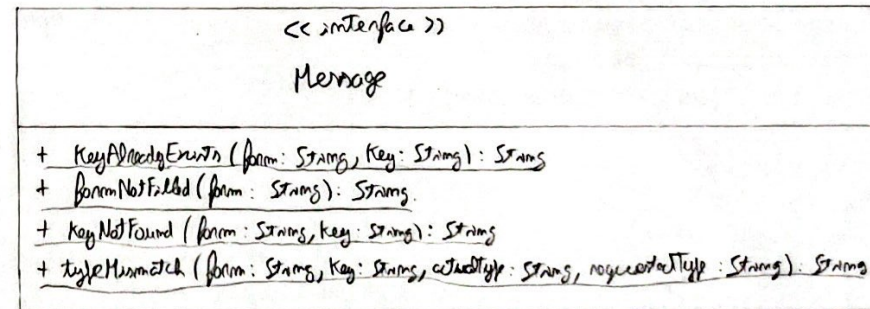 << interface >>
Message
+ keyAlreadyExists (form: String, key: String): String
+ formNotFilled (form: String): String
+ keyNotFound (form: String, key: String): String
+ typeMismatch (form: String, key: String, actualType: String, requestedType: String): String